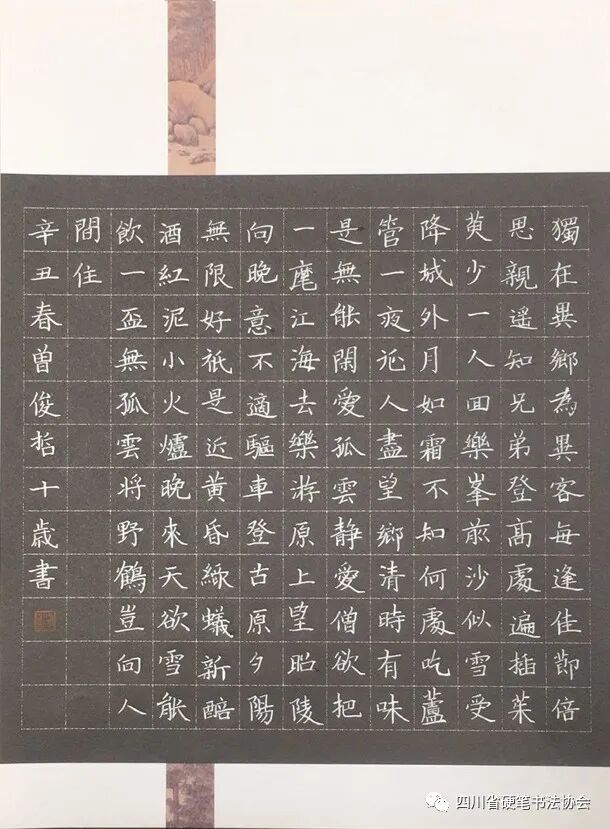 獨在異鄉為異客每逢佳節倍
思親遥知兄弟登高處遍插茱
萸少一人回樂峯前沙似雪受
降城外月如霜不知何處吹蘆
管一夜征人盡望鄉清時有味
是無能閑愛孤雲靜愛僧欲把
一麾江海去樂游原上望昭陵
向晚意不適驅車登古原夕陽
無限好祇是近黄昏綠蟻新醅
酒紅泥小火爐晚來天欲雪能
飲一盃無孤雲将野鶴豈向人
間住
辛丑春曾俊哲十歲書
四川省硬笔书法协会